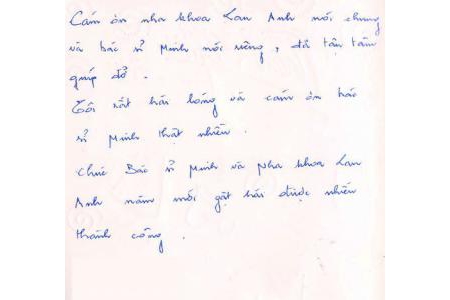 Cám ơn nha khoa Lan Anh nói chung
và bác sĩ Minh nói riêng, đã tận tâm
giúp đỡ.
Tôi rất hài lòng và cám ơn bác
sĩ Minh thật nhiều.
Chúc Bác sĩ Minh và Nha khoa Lan
Anh năm mới gặt hái được nhiều
thành công.